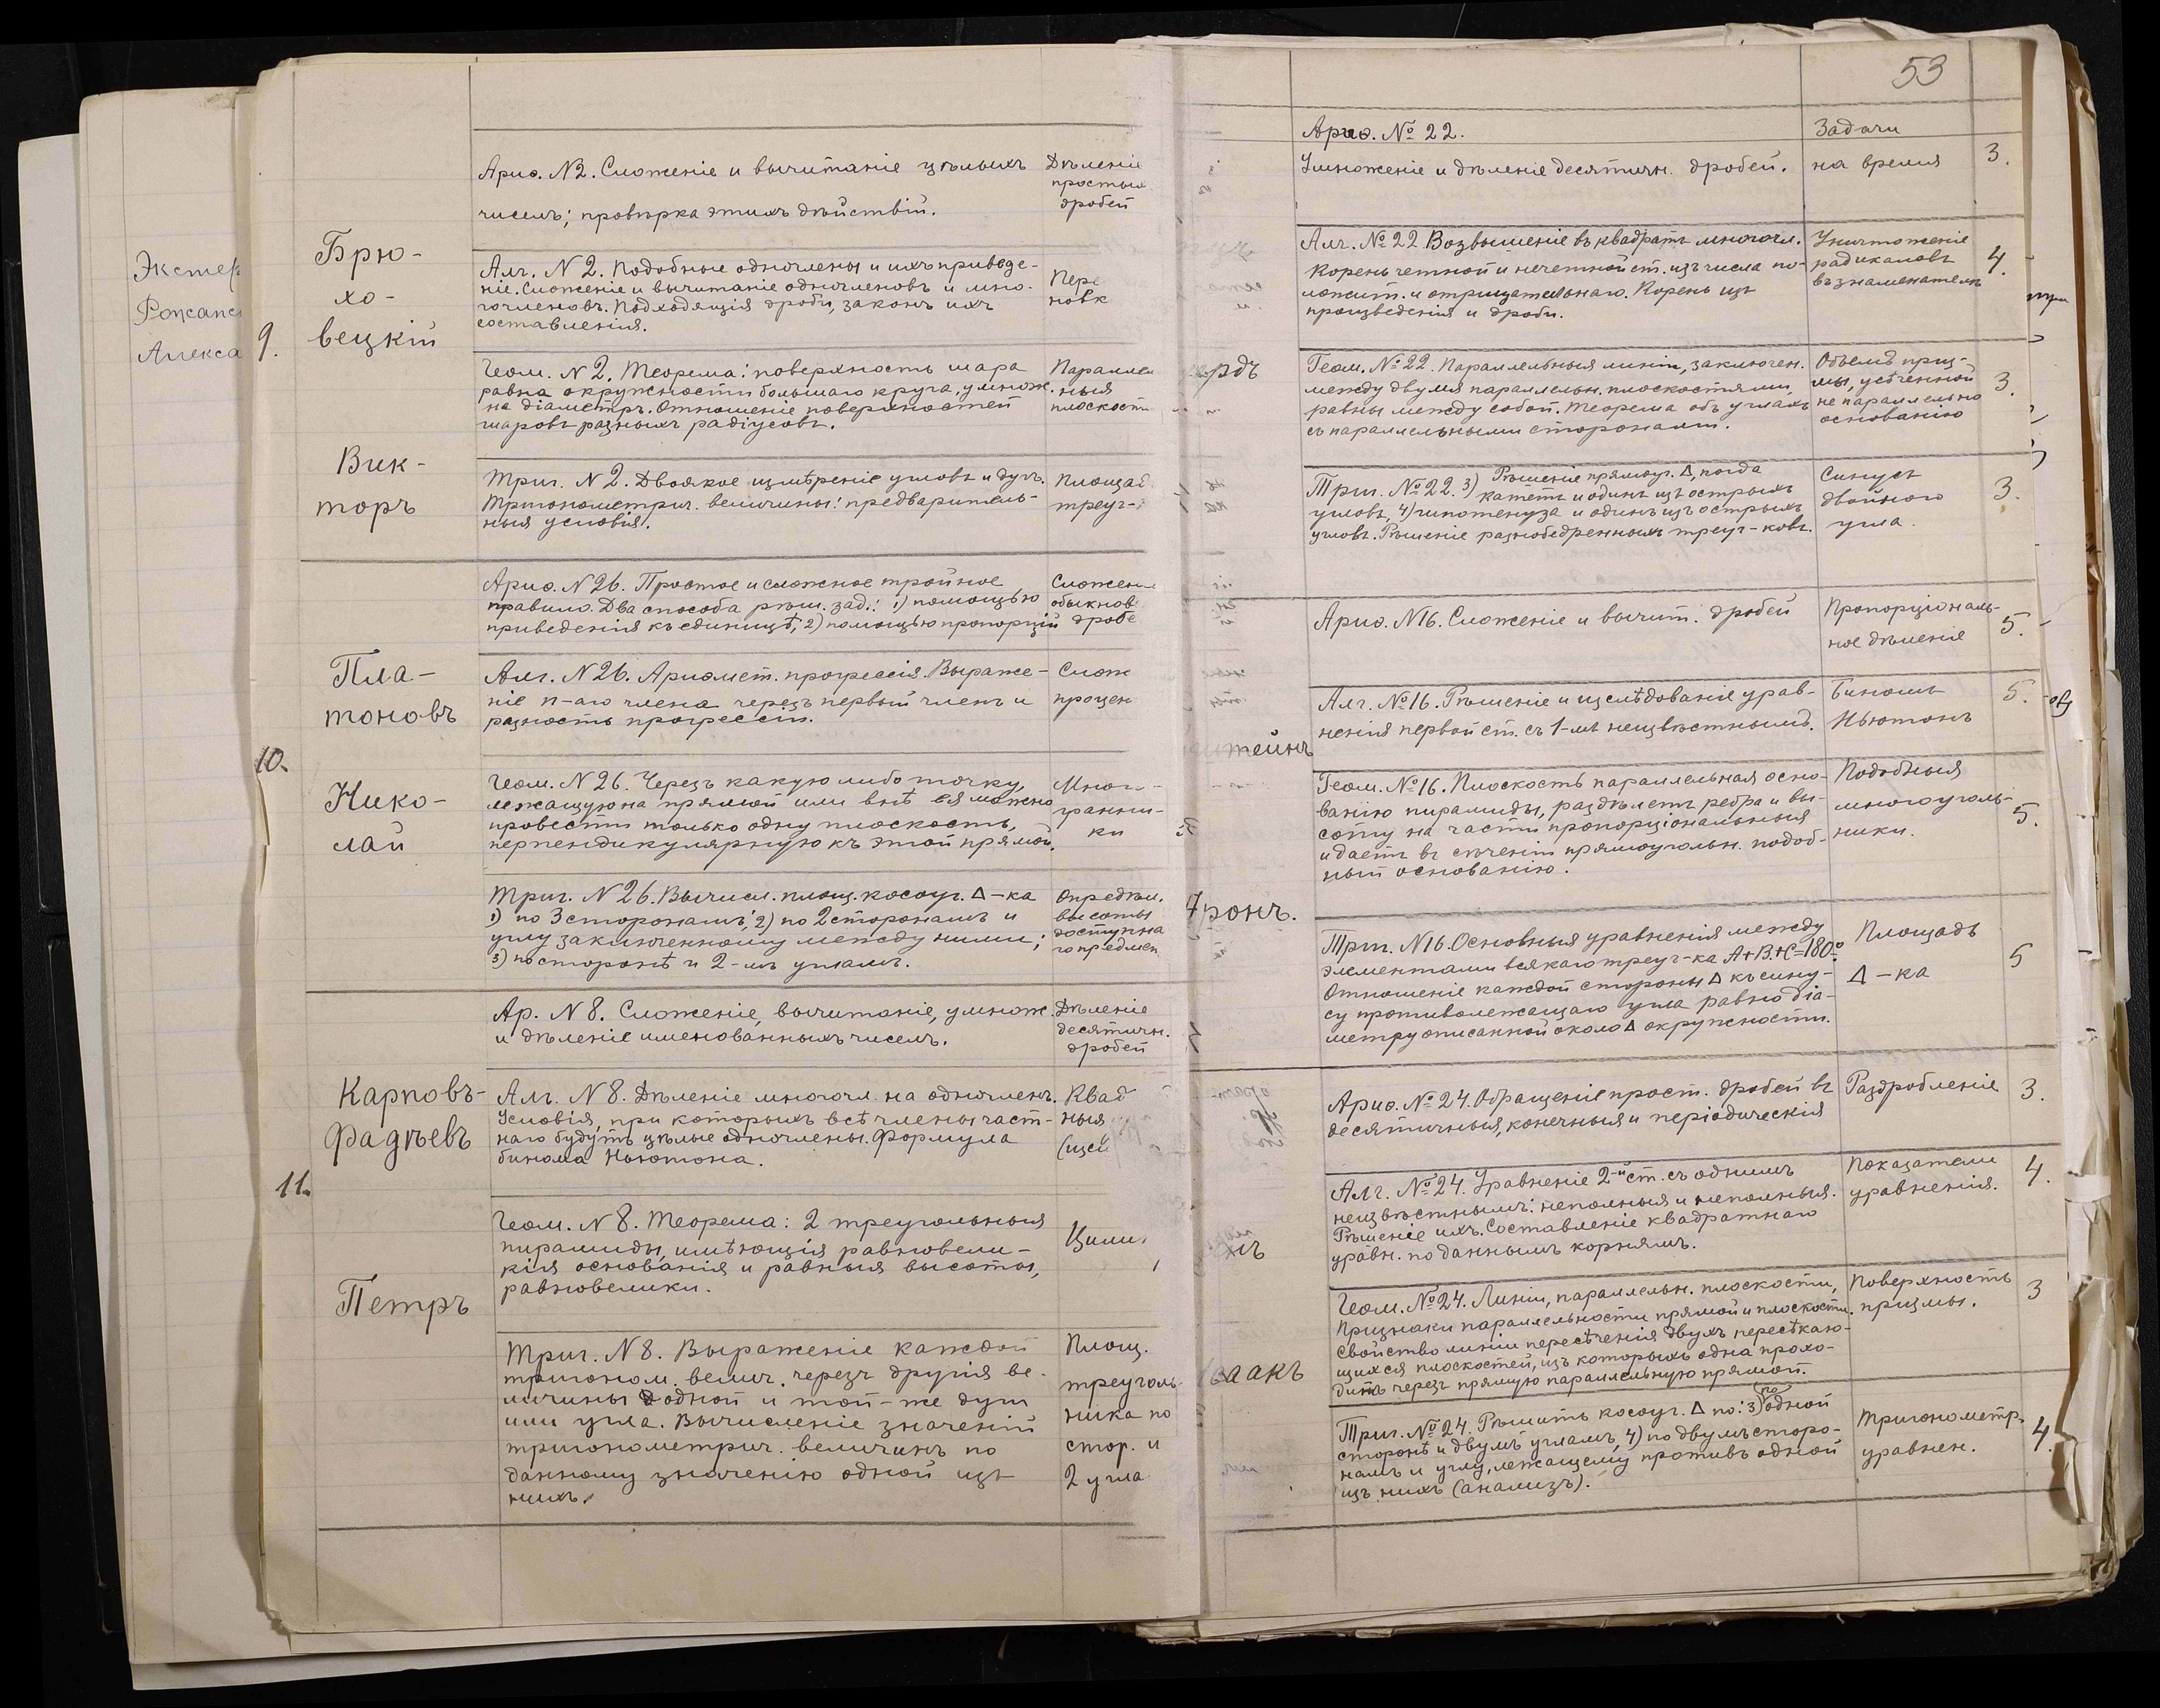 Экстер
Рожанс
Алекса
9.
Брю-
хо-
вецкій
Вик-
торъ
Ариѳ. N2. Сложеніе и вычитаніе цѣлыхъ
чиселъ; провѣрка этихъ дѣйствій.
Дѣленіе
простых
дробей
Алг. N 2. Подобные одночлены и ихъ приведе-
ніе. Сложеніе и вычитаніе одночленовъ и мно-
гочленовъ. Подходящія дроби, законъ ихъ
составленія.
Пере
новк
Геом. N 2. Теорема: поверхность шара
равна окружности большаго круга, умнож.
на діаметръ. Отношеніе поверхностей
шаровъ разныхъ радіусовъ.
Параллел
ныя
плоскости
Триг. N 2. Двоякое измѣреніе угловъ и дугъ.
Тригонометрич. величины: предваритель-
ныя условія.
Площад
треуг-
10.
Пла-
тоновъ
Нико-
лай
Ариѳ. N 26. Простое и сложное тройное
правило. Два способа рѣш. зад.: 1) помощью
приведенія къ единицѣ; 2) помощью пропорцій
Сложен
обыкнов
дробе
Алг. N 26. Ариѳмет. прогрессія. Выраже-
ніе n-аго члена черезъ первый членъ и
разность прогрессіи.
Слож
процен
Геом. N 26. Черезъ какую либо точку,
лежащую на прямой или внѣ ея можно
провести только одну плоскость,
перпендикулярную къ этой прямой.
Мног-
гранни-
ки
Триг. N 26. Вычисл. площ. косоуг. Δ-ка
1) по 3 сторонамъ; 2) по 2 сторонамъ и
углу заключенному между ними;
3) по сторонѣ и 2-мъ угламъ.
Опредѣл.
высоты
доступна
го предмет
11.
Карповъ-
Фадѣевъ
Петръ
Ар. N 8. Сложеніе, вычитаніе, умнож.
и дѣленіе именованныхъ чиселъ.
Дѣленіе
десятичн.
дробей
Алг. N 8. Дѣленіе многочл. на одночленъ.
Условія, при которыхъ всѣ члены част-
наго будутъ цѣлые одночлены. Формула
бинома Ньютона.
Квад
ныя
Геом. N 8. Теорема: 2 треугольныя
пирамиды, имѣющія равновели-
кія основанія и равныя высоты,
равновелики.
Цили
Триг. N 8. Выраженіе каждой
тригоном. велич. черезъ другія ве-
личины одной и той-же дуги
или угла. Вычисленіе значеній
тригонометрич. величинъ по
данному значенію одной изъ
нихъ.
Площ.
треуголь-
ника по
стор. и
2 угла
53
Ариѳ. № 22.
Умноженіе и дѣленіе десятичн. дробей.
Задачи
на время
3.
Алг. № 22 Возвышеніе въ квадратъ многочл.
Корень четной и нечетной ст. изъ числа по-
ложит. и отрицательнаго. Корень изъ
произведенія и дроби.
Уничтоженіе
радикаловъ
въ знаменателѣ
4.
рдъ
Геом. № 22. Параллельныя линіи, заключен.
между двумя параллельн. плоскостями,
равны между собой. Теорема объ углахъ
съ параллельными сторонами.
Объемъ приз-
мы, усѣченной
не параллельно
основанію
3.
Триг. № 22. 3) Рѣшеніе прямоуг. Δ, когда
катетъ и одинъ изъ острыхъ
угловъ, 4) гипотенуза и одинъ изъ острыхъ
угловъ. Рѣшеніе равнобедренныхъ треуг-ковъ.
Синусъ
двойного
угла.
3.
тейнъ
ронъ.
Ариѳ. N16. Сложеніе и вычит. дробей
Пропорціональ-
ное дѣленіе
5.
Алг. №16. Рѣшеніе и изслѣдованіе урав-
ненія первой ст. съ 1-мъ неизвѣстнымъ.
Биномъ
Ньютонъ
5.
Геом. №16. Плоскость параллельная осно-
ванію пирамиды, раздѣлетъ ребра и вы-
соту на части пропорціональныя
и даетъ въ сѣченіи прямоугольн. подоб-
ный основанію.
Подобныя
многоуголь-
ники.
5.
Триг. N16. Основныя уравненія между
элементами всякаго треуг-ка A+B+C=180°.
Отношеніе каждой стороны Δ къ сину-
су противолежащаго угла равно діа-
метру описанной около Δ окружности.
Площадь
Δ-ка
5
нъ
саакъ
Ариѳ. № 24. Обращеніе прост. дробей въ
десятичныя, конечныя и періодическія
Раздробленіе
3.
Алг. № 24. Уравненіе 2-й ст. съ однимъ
неизвѣстнымъ: неполныя и неполныя.
Рѣшеніе ихъ. Составленіе квадратнаго
уравн. по даннымъ корнямъ.
Показатели
уравненія.
4.
Геом. №24. Линіи, параллельн. плоскости,
Признаки параллельности прямой и плоскости.
Свойство линіи пересѣченія двухъ пересѣкаю-
щихся плоскостей, изъ которыхъ одна прохо-
дитъ черезъ прямую параллельную прямой.
Поверхность
призмы.
3
Триг. № 24. Рѣшить косоуг. Δ по: 3) по одной
сторонѣ и двумъ угламъ, 4) по двумъ сторо-
намъ и углу, лежащему противъ одной
изъ нихъ (анализъ).
Тригонометр.
уравнен.
4.